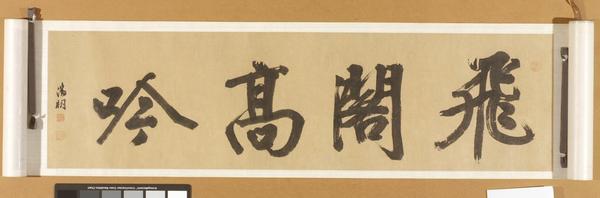 飛閣高吟
徵明